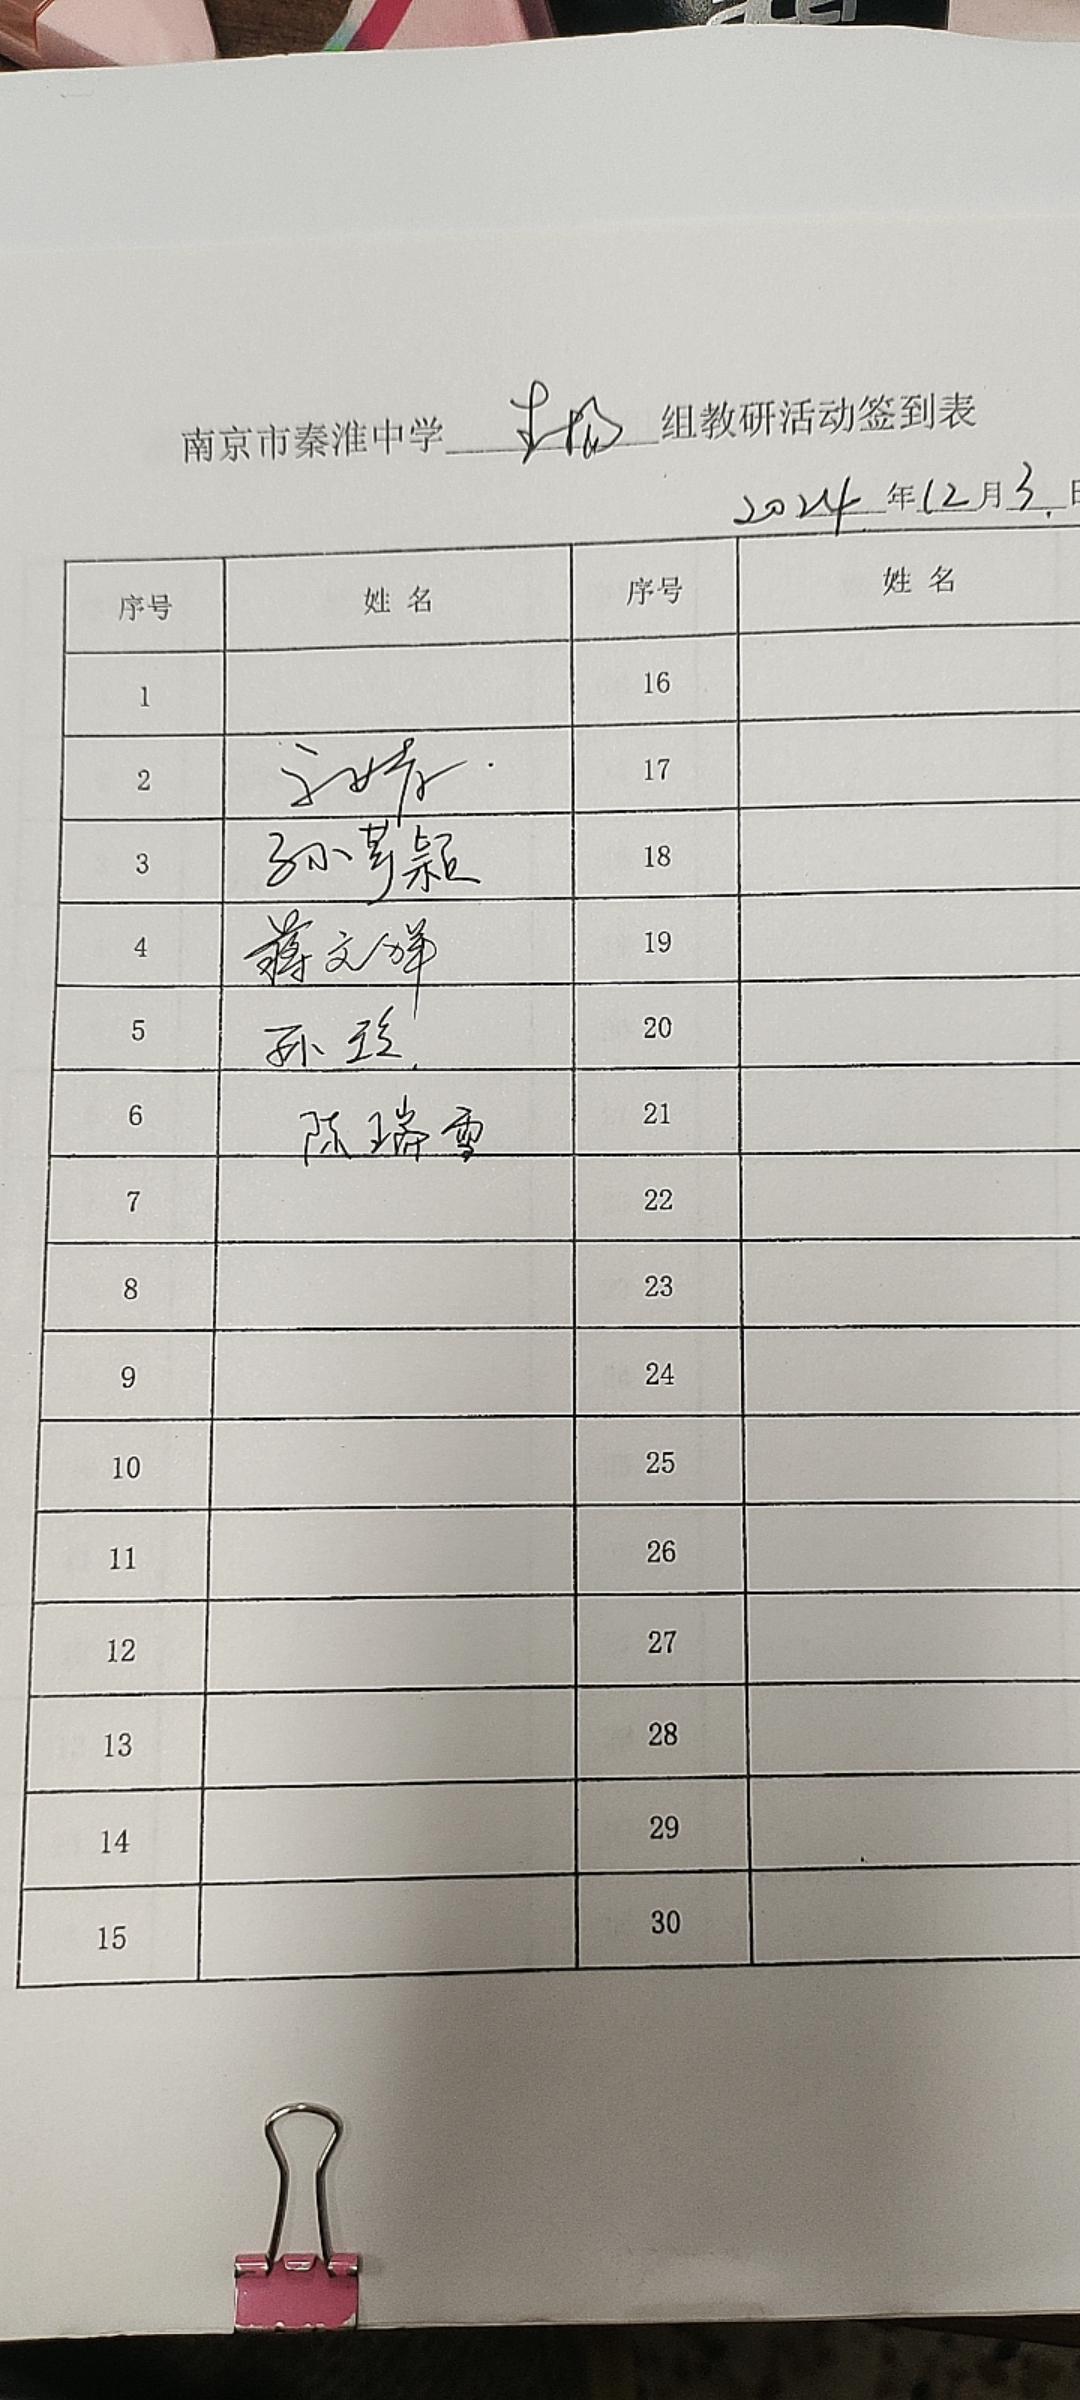 南京市秦淮中学 组教研活动签到表
2024年12月3日
序号 姓名 序号 姓名
1 16
2 17
3 孙 颖 18
4 蒋文 19
5 孙 20
6 陈瑞雪 21
7 22
8 23
9 24
10 25
11 26
12 27
13 28
14 29
15 30